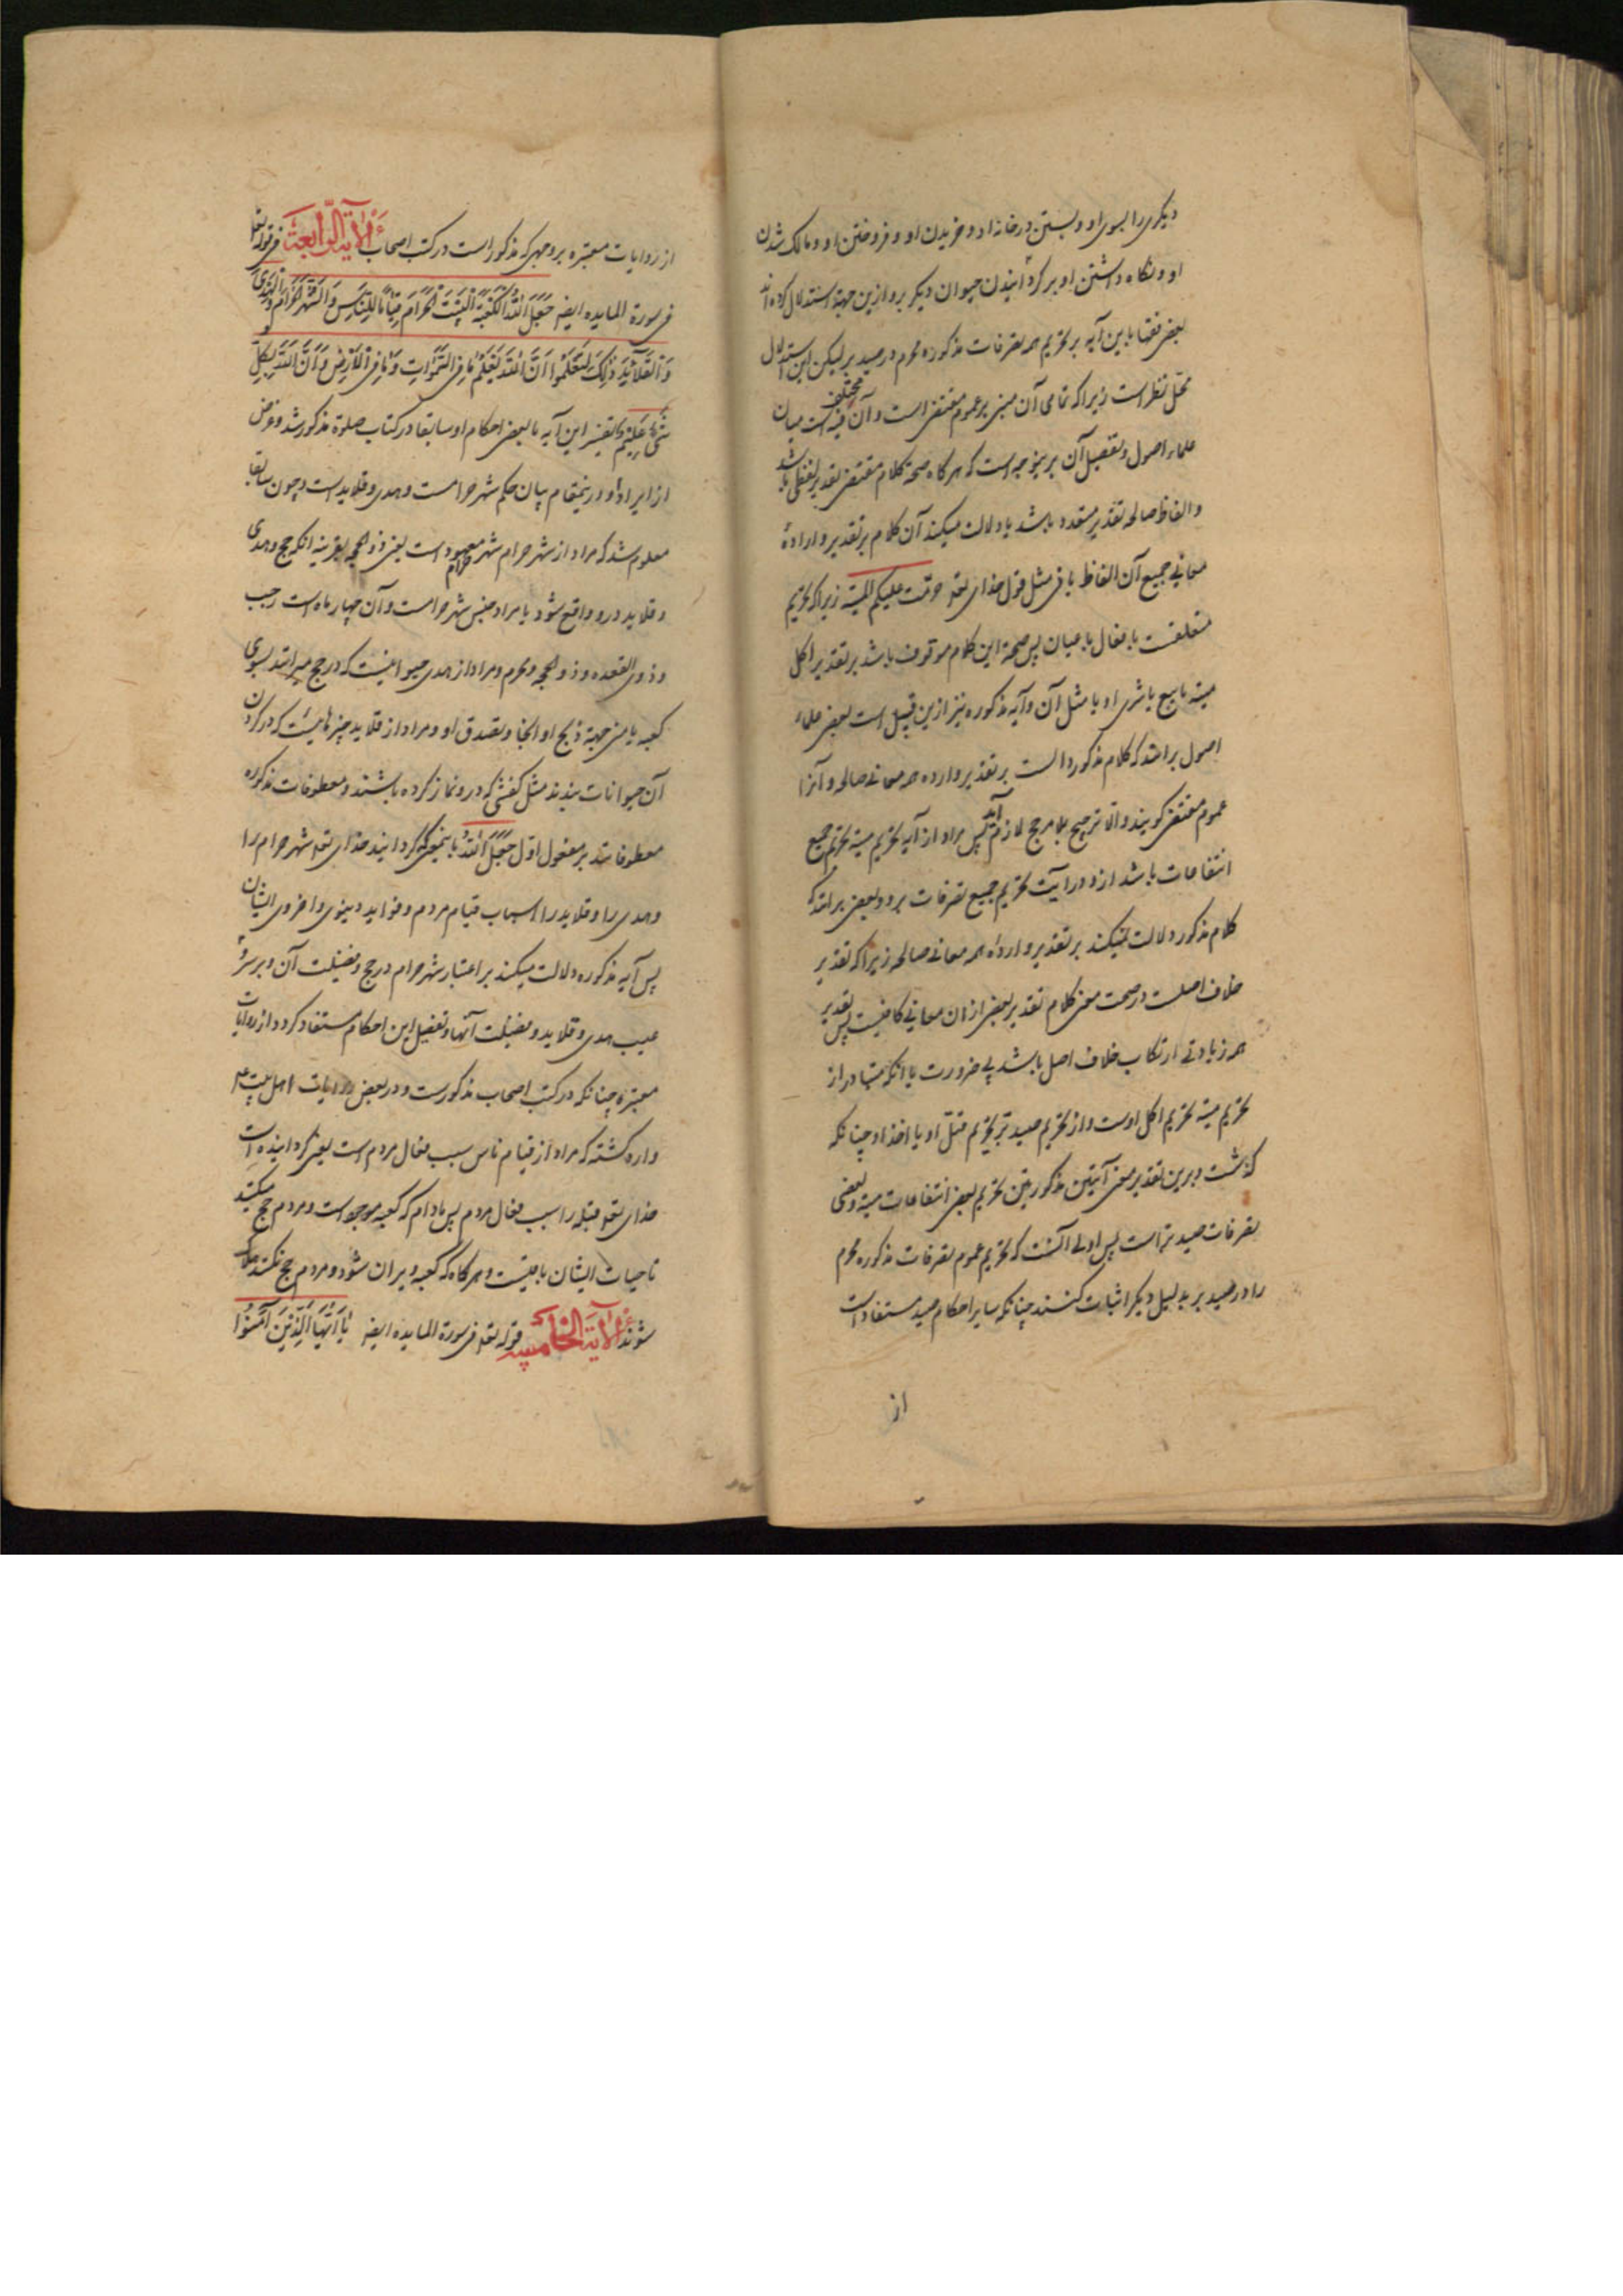 دیگری را بسوی او و بستن در خانه او و خریدن او و فروختن او و مالک شدن
او و نگاه داشتن او بر گردانیدن حیوان دیگر برو ازین جهة استدلال کرده اند
بعض فقها باین آیه بر تحریم همه تصرفات مذکوره محرم در صید بر لیکن این استدلال
محل نظر است زیرا که تمامی آن مبنی بر عموم مقتضی است و آن مختلف فیه است میان
علماء اصول و تفصیل آن برینوجه است که هر کاه صحة کلام مقتضی تقدیر لفظی باشد
و الفاظ صالحه تقدیر متعدد باشد یا دلالت میکند آن کلام بر تقدیر و ارادهٔ
معانی جمیع آن الفاظ یا نی مثل قول خدای تعه حرمت علیکم المیتة زیرا که تحریم
متعلقست بافعال باعیان پس صحة این کلام موقوف باشد بر تقدیر اکل
میته یا بیع یا شری او یا مثل آن و آیه مذکوره نیز ازین قبیل است بعض علماء
اصول برانند که کلام مذکور دالست بر تقدیر و اراده همه معانی صالحه و آنرا
عموم مقتضی کویند والا ترجیح بلا مرجح لازم آید پس مراد از آیه تحریم میته تحریم جمیع
انتفاعات باشد ازو و در آیت تحریم جمیع تصرفات برو و بعض برانند که
کلام مذکور دلالت نمیکند بر تقدیر و اراده همه معانی صالحه زیرا که تقدیر
خلاف اصلست و در صحت معنی کلام تقدیر بعض از ان معانی کافیست پس تقدیر
همه زیادتی ارتکاب خلاف اصل باشد بی ضرورت با آنکه متبادر از
تحریم میته تحریم اکل اوست و از تحریم صید بر تحریم قتل او یا اخذ او چنانکه
کذشت و برین تقدیر معنی آیتین مذکورتین تحریم بعض انتفاعات میته و بعضی
تصرفات صید بر است پس اولی آنست که تحریم عموم تصرفات مذکوره محرم
را در صید بر بدلیل دیکر اثبات کنند چنانکه سایر احکام صید مستفاد است
از
از روایات معتبره بر وجهی که مذکور است در کتب اصحاب الآیة الرابعة فی قوله تعا
فی سورة المایده ایضه جَعَلَ اللّٰهُ الْکَعْبَةَ الْبَیْتَ الْحَرَامَ قِیَامًا لِلنَّاسِ وَ الشَّهْرَ الْحَرَامَ وَ الْهَدْیَ
وَ الْقَلَائِدَ ذٰلِکَ لِتَعْلَمُوا اَنَّ اللّٰهَ یَعْلَمُ مَا فِی السَّمٰوَاتِ وَ مَا فِی الْاَرْضِ وَ اَنَّ اللّٰهَ بِکُلِّ
شَیْءٍ عَلِیمٌ تفسیر این آیه با بعض احکام او سابقا در کتاب صلوة مذکور شد و غرض
از ایراد او درینمقام بیان حکم شهر حرامست و هدی و قلاید است و چون سابقا
معلوم شد که مراد از شهر حرام شهر حرام معهود است یعنی ذو الحجه بقرینه آنکه حج و هدی
و قلاید درو واقع شود یا مراد جنس شهر حرامست و آن چهار ماه است رجب
و ذوی القعده و ذو الحجه و محرم و مراد از هدی حیوانیست که در حج میرانند بسوی
کعبه یا منی جهة ذبح او آنجا و تصدق او و مراد از قلاید چیزهائیست که در کردن
آن حیوانات بندند مثل کفشی که درو نماز کرده باشند و معطوفات مذکوره
معطوفانند بر مفعول اوّل جَعَلَ اللّٰهُ باینمعنی که کردانید خدای تعه شهر حرام را
و هدی را و قلاید را اسباب قیام مردم و فواید دینوی و اخروی ایشان
پس آیه مذکوره دلالت میکند بر اعتبار شهر حرام در حج و فضیلت آن و بر مشرو
عیب هدی و قلاید و فضیلت آنها و تفصیل این احکام مستفاد کردد از روایات
معتبره چنانکه در کتب اصحاب مذکورست و در بعض روایات اهل بیت ع
وارد کشته که مراد از قیام ناس سبب فعال مردم است یعنی کردانیده است
خدای تعه قبله را سبب فعال مردم پس مادام که کعبه موجود است و مردم حج میکنند
تا حیات ایشان باقیست و هر کاه که کعبه ویران شود و مردم حج نکنند هلاک
شوند الآیة الخامسه قوله تعه فی سورة المایده ایضه یٰا اَیُّهَا الَّذِینَ آمَنُوا